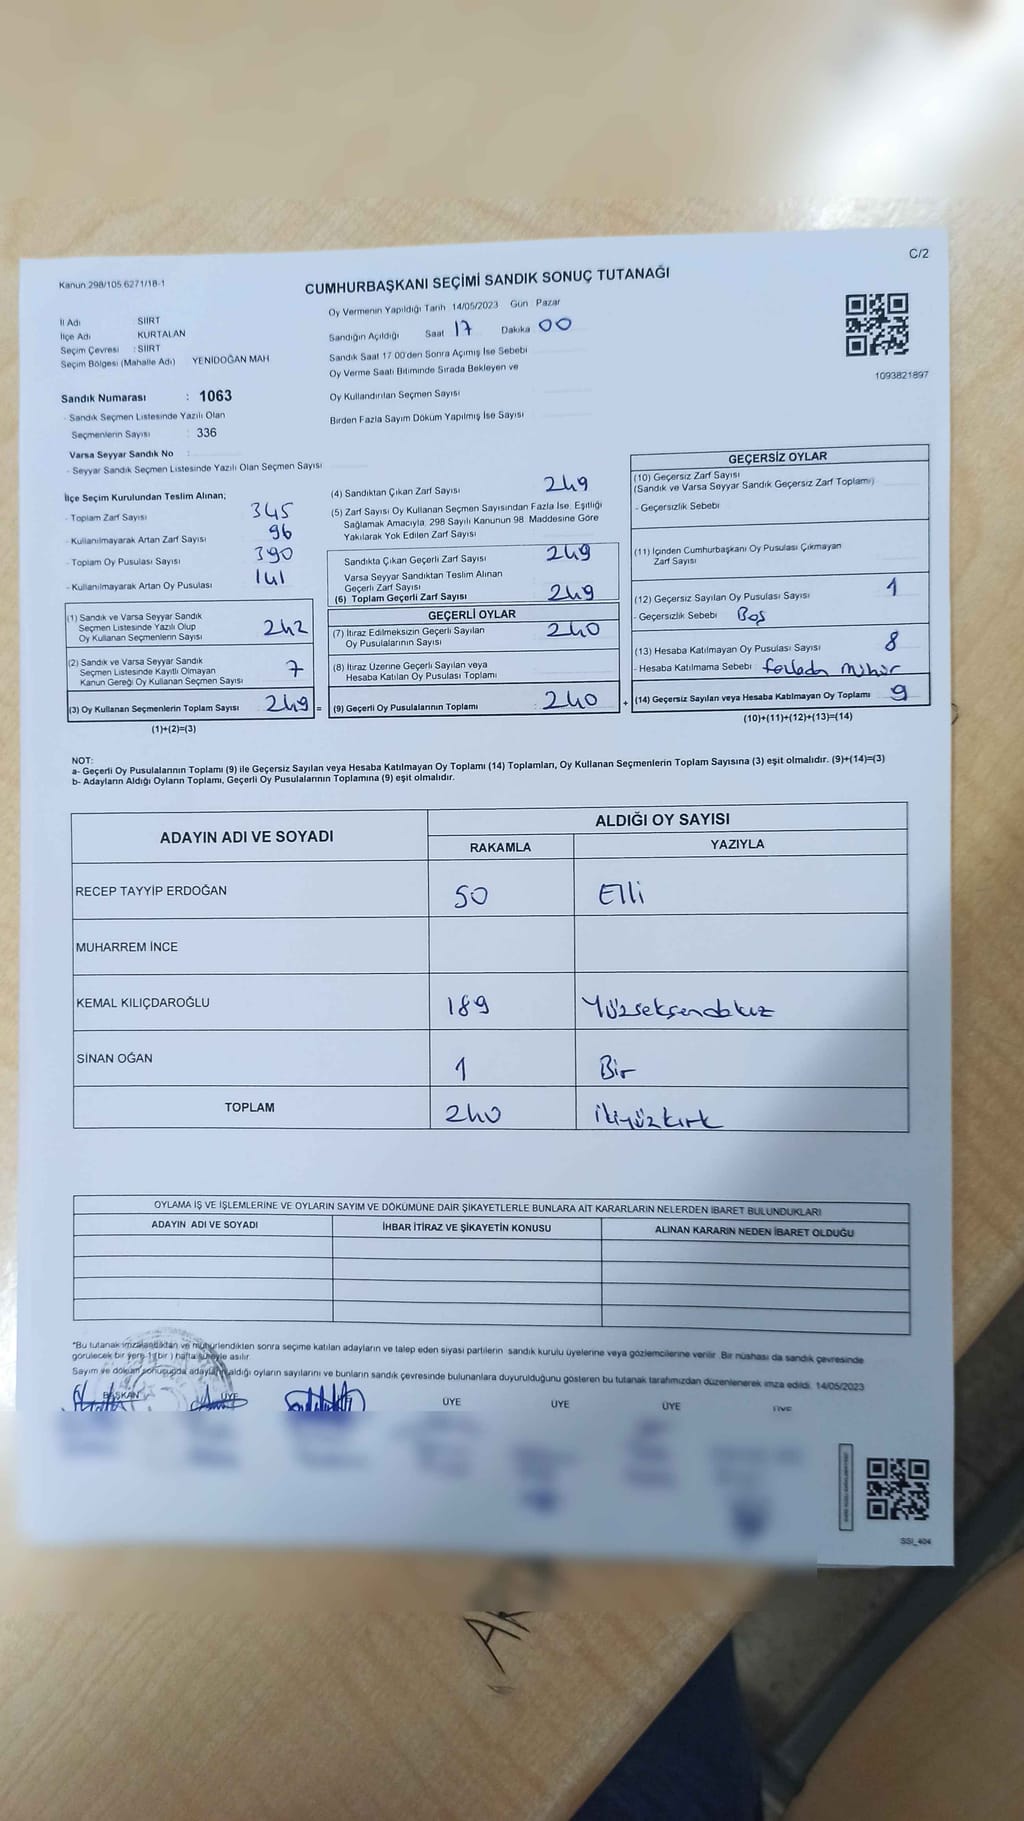 C/2
Kanun 298/105.6271/18-1
CUMHURBAŞKANI SEÇİMİ SANDIK SONUÇ TUTANAĞI
Oy Vermenin Yapıldığı Tarih 14/05/2023 Gün Pazar
İl Adı SİİRT
İlçe Adı KURTALAN
Seçim Çevresi : SİİRT
Seçim Bölgesi (Mahalle Adı) YENİDOĞAN MAH
Sandığın Açıldığı Saat 17 Dakika 00
Sandık Saat 17 00'den Sonra Açımış İse Sebebi
Oy Verme Saati Bitiminde Sırada Bekleyen ve
Oy Kullandırılan Seçmen Sayısı
Birden Fazla Sayım Döküm Yapılmış İse Sayısı
1093821897
Sandık Numarası : 1063
- Sandık Seçmen Listesinde Yazılı Olan
Seçmenlerin Sayısı : 336
Varsa Seyyar Sandık No :
- Seyyar Sandık Seçmen Listesinde Yazılı Olan Seçmen Sayısı
İlçe Seçim Kurulundan Teslim Alınan;
- Toplam Zarf Sayısı 345
- Kullanılmayarak Artan Zarf Sayısı 96
- Toplam Oy Pusulası Sayısı 390
- Kullanılmayarak Artan Oy Pusulası 141
(1) Sandık ve Varsa Seyyar Sandık
Seçmen Listesinde Yazılı Olup
Oy Kullanan Seçmenlerin Sayısı 242
(2) Sandık ve Varsa Seyyar Sandık
Seçmen Listesinde Kayıtlı Olmayan
Kanun Gereği Oy Kullanan Seçmen Sayısı 7
(3) Oy Kullanan Seçmenlerin Toplam Sayısı 249 =
(1)+(2)=(3)
(4) Sandıktan Çıkan Zarf Sayısı 249
(5) Zarf Sayısı Oy Kullanan Seçmen Sayısından Fazla İse, Eşitliği
Sağlamak Amacıyla, 298 Sayılı Kanunun 98. Maddesine Göre
Yakılarak Yok Edilen Zarf Sayısı
Sandıkta Çıkan Geçerli Zarf Sayısı 249
Varsa Seyyar Sandıktan Teslim Alınan
Geçerli Zarf Sayısı
(6) Toplam Geçerli Zarf Sayısı 249
GEÇERLİ OYLAR
(7) İtiraz Edilmeksizin Geçerli Sayılan
Oy Pusulalarının Sayısı 240
(8) İtiraz Üzerine Geçerli Sayılan veya
Hesaba Katılan Oy Pusulası Toplamı
(9) Geçerli Oy Pusulalarının Toplamı : 240 +
GEÇERSİZ OYLAR
(10) Geçersiz Zarf Sayısı
(Sandık ve Varsa Seyyar Sandık Geçersiz Zarf Toplamı)
- Geçersizlik Sebebi
(11) İçinden Cumhurbaşkanı Oy Pusulası Çıkmayan
Zarf Sayısı
(12) Geçersiz Sayılan Oy Pusulası Sayısı 1
- Geçersizlik Sebebi Boş
(13) Hesaba Katılmayan Oy Pusulası Sayısı 8
- Hesaba Katılmama Sebebi fazlada mühür
(14) Geçersiz Sayılan veya Hesaba Katılmayan Oy Toplamı 9
(10)+(11)+(12)+(13)=(14)
NOT:
a- Geçerli Oy Pusulalarının Toplamı (9) ile Geçersiz Sayılan veya Hesaba Katılmayan Oy Toplamı (14) Toplamları, Oy Kullanan Seçmenlerin Toplam Sayısına (3) eşit olmalıdır. (9)+(14)=(3)
b- Adayların Aldığı Oyların Toplamı, Geçerli Oy Pusulalarının Toplamına (9) eşit olmalıdır.
ADAYIN ADI VE SOYADI ALDIĞI OY SAYISI
RAKAMLA YAZIYLA
RECEP TAYYİP ERDOĞAN 50 Elli
MUHARREM İNCE
KEMAL KILIÇDAROĞLU 189 Yüzseksendokuz
SİNAN OĞAN 1 Bir
TOPLAM 240 ikiyüzkırk
OYLAMA İŞ VE İŞLEMLERİNE VE OYLARIN SAYIM VE DÖKÜMÜNE DAİR ŞİKAYETLERLE BUNLARA AİT KARARLARIN NELERDEN İBARET BULUNDUKLARI
ADAYIN ADI VE SOYADI İHBAR İTİRAZ VE ŞİKAYETİN KONUSU ALINAN KARARIN NEDEN İBARET OLDUĞU
"Bu tutanak imzalandıktan ve mühürlendikten sonra seçime katılan adayların ve talep eden siyasi partilerin sandık kurulu üyelerine veya gözlemcilerine verilir. Bir nüshası da sandık çevresinde
görülecek bir yere 1 (bir) hafta süreyle asılır.
Sayım ve döküm sonucunda adayların aldığı oyların sayılarını ve bunların sandık çevresinde bulunanlara duyurulduğunu gösteren bu tutanak tarafımızdan düzenlenerek imza edildi. 14/05/2023
BAŞKAN ÜYE ÜYE ÜYE ÜYE ÜYE
SSI_404